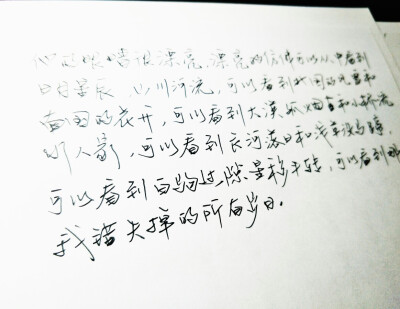 心的眼睛很漂亮,漂亮的仿佛可以从中看到
日月星辰,山川河流,可以看到北国的风雪和
南国的花开,可以看到大漠孤烟和小桥流
的人影,可以看到长河落日和
可以看到白驹过隙星移斗转,可以看到那
我错失掉的所有岁月.